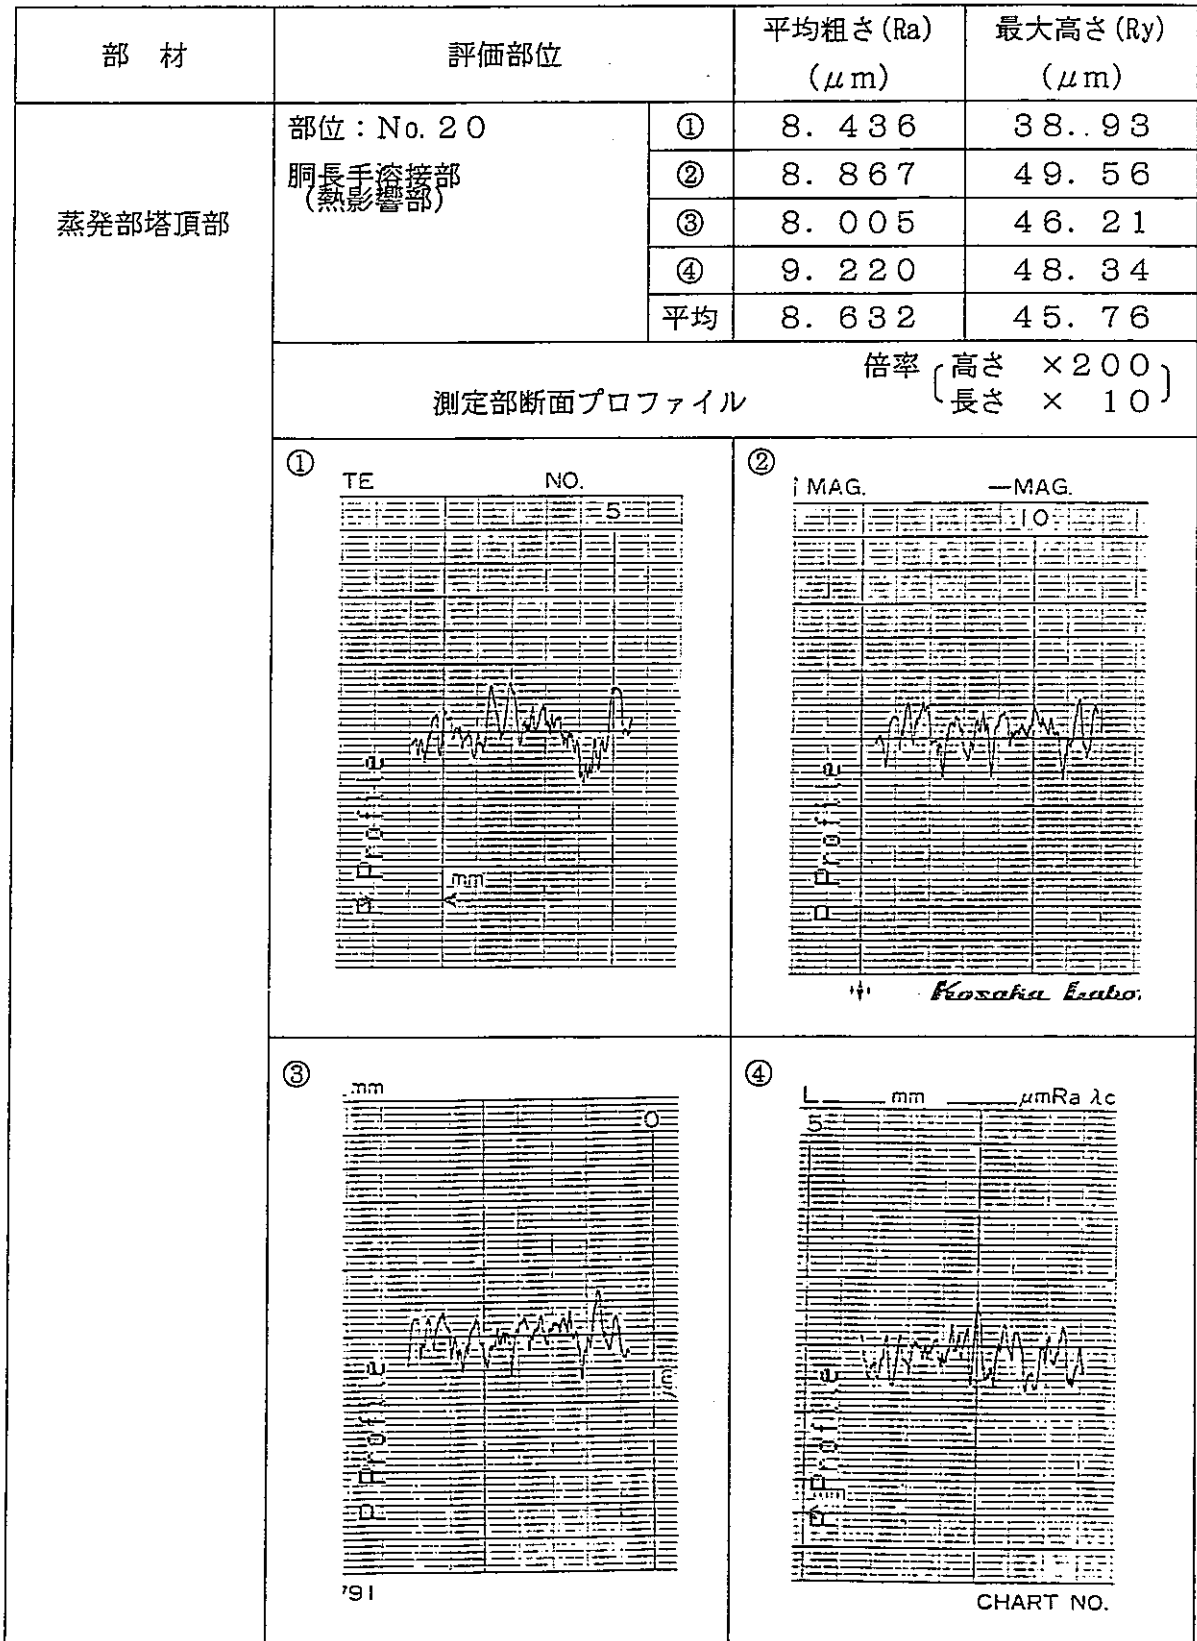 部 材 評価部位 平均粗さ(Ra) (μm) 最大高さ(Ry) (μm)
蒸発部塔頂部
部位：No. 20
胴長手溶接部
(熱影響部)
① 8. 436 38..93
② 8. 867 49. 56
③ 8. 005 46. 21
④ 9. 220 48. 34
平均 8. 632 45. 76
測定部断面プロファイル 倍率 高さ ×200
長さ × 10
①
TE NO.
5
P Profile
mm
②
MAG. —MAG.
10
P Profile
Kosaka Labo.
③
mm
0
P Profile
791
④
L mm μmRa λc
5
P Profile
CHART NO.